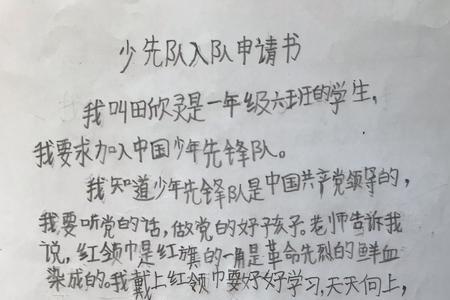 少先队入队申请书
我叫田欣灵是一年级六班的学生，
我要求加入中国少年先锋队。
我知道少年先锋队是中国共产党领导的，
我要听党的话，做党的好孩子。老师告诉我
说，红领巾是红旗的一角是革命先烈的鲜血
染成的。我戴上红领巾要好好学习，天天向上，